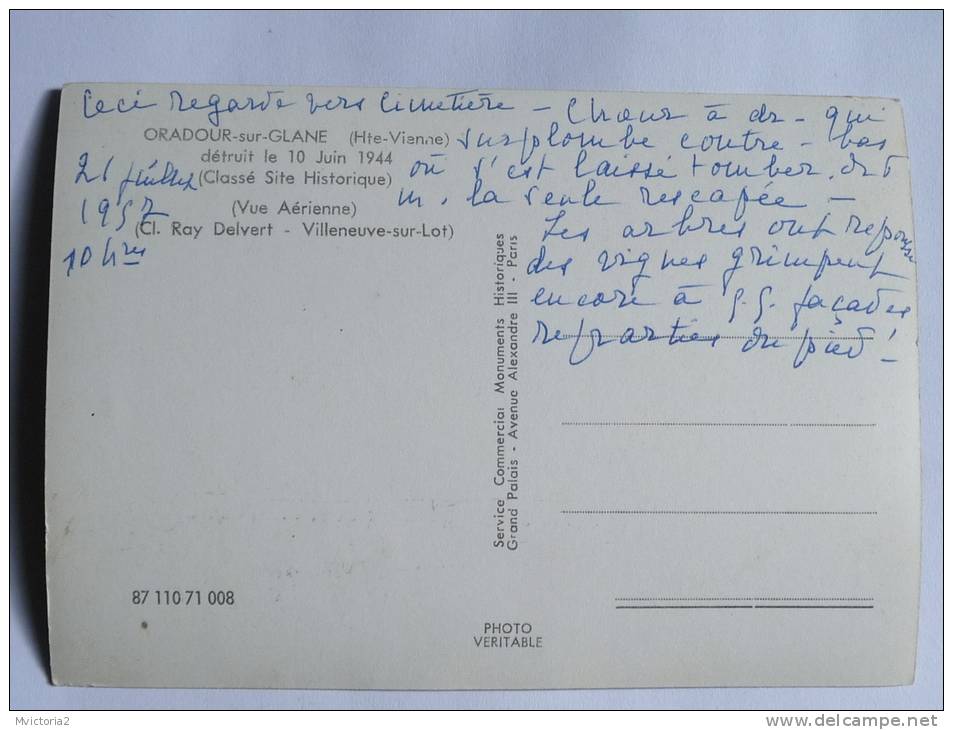 Ceci regarde vers Cimetière – Chœur à dr – qui
ORADOUR-sur-GLANE (Hte-Vienne) surplombe contre-bas
détruit le 10 Juin 1944 où s'est laissé tomber de 5
21 juillet (Classé Site Historique) m. la seule rescapée –
1957 (Vue Aérienne) Les arbres ont repoussé
(Cl. Ray Delvert - Villeneuve-sur-Lot)
10 hres
des vignes grimpent
encore à façades
reparties du pied !
Service Commercial Monuments Historiques
Grand Palais - Avenue Alexandre III - Paris
87 110 71 008
PHOTO
VERITABLE
Mvictoria2
www.delcampe.net